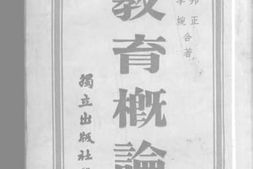 邦正
李婉合著
教育概論
獨立出版社